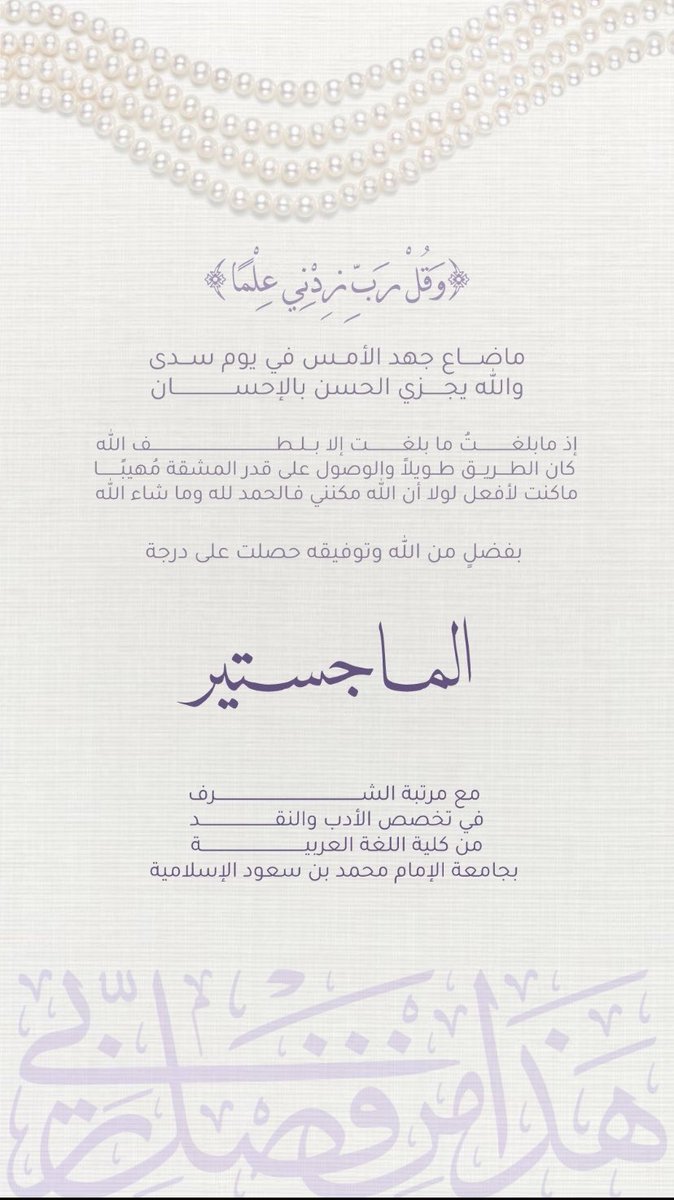 ﴿وَقُلْ رَبِّ زِدْنِي عِلْمًا﴾
ماضاع جهد الأمس في يوم سدى
والله يجزي الحسن بالإحسان
إذ مابلغتُ ما بلغت إلا بلطف الله
كان الطريق طويلاً والوصول على قدر المشقة مُهيبًا
ماكنت لأفعل لولا أن الله مكنني فالحمد لله وما شاء الله
بفضلٍ من الله وتوفيقه حصلت على درجة
الماجستير
مع مرتبة الشرف
في تخصص الأدب والنقد
من كلية اللغة العربية
بجامعة الإمام محمد بن سعود الإسلامية
هَذَا مِن فَضْلِ رَبِّي